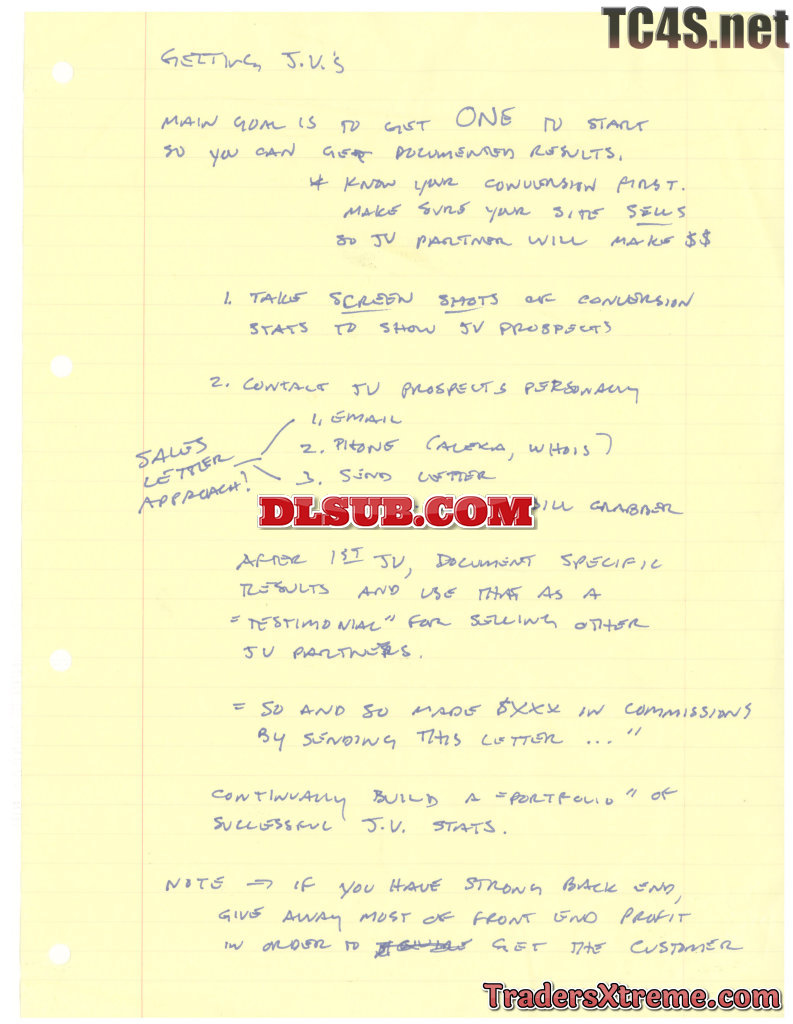 TC4S.net
GETTING J.V.'s
MAIN GOAL IS TO GET ONE TO START
SO YOU CAN GET DOCUMENTED RESULTS.
* KNOW YOUR CONVERSION FIRST.
MAKE SURE YOUR SITE SELLS
SO JV PARTNER WILL MAKE $$
1. TAKE SCREEN SHOTS OF CONVERSION
STATS TO SHOW JV PROSPECTS
2. CONTACT JV PROSPECTS PERSONALLY
1. EMAIL
2. PHONE (ALEXA, WHOIS)
3. SEND LETTER
SALES
LETTER
APPROACH!
DLSUB.COM
GRABBER
AFTER 1ST JV, DOCUMENT SPECIFIC
RESULTS AND USE THAT AS A
"TESTIMONIAL" FOR SELLING OTHER
JV PARTNERS.
"SO AND SO MADE $XXX IN COMMISSIONS
BY SENDING THIS LETTER ..."
CONTINUALLY BUILD A "PORTFOLIO" OF
SUCCESSFUL J.V. STATS.
NOTE → IF YOU HAVE STRONG BACK END,
GIVE AWAY MOST OF FRONT END PROFIT
IN ORDER TO GET THE CUSTOMER
TradersXtreme.com